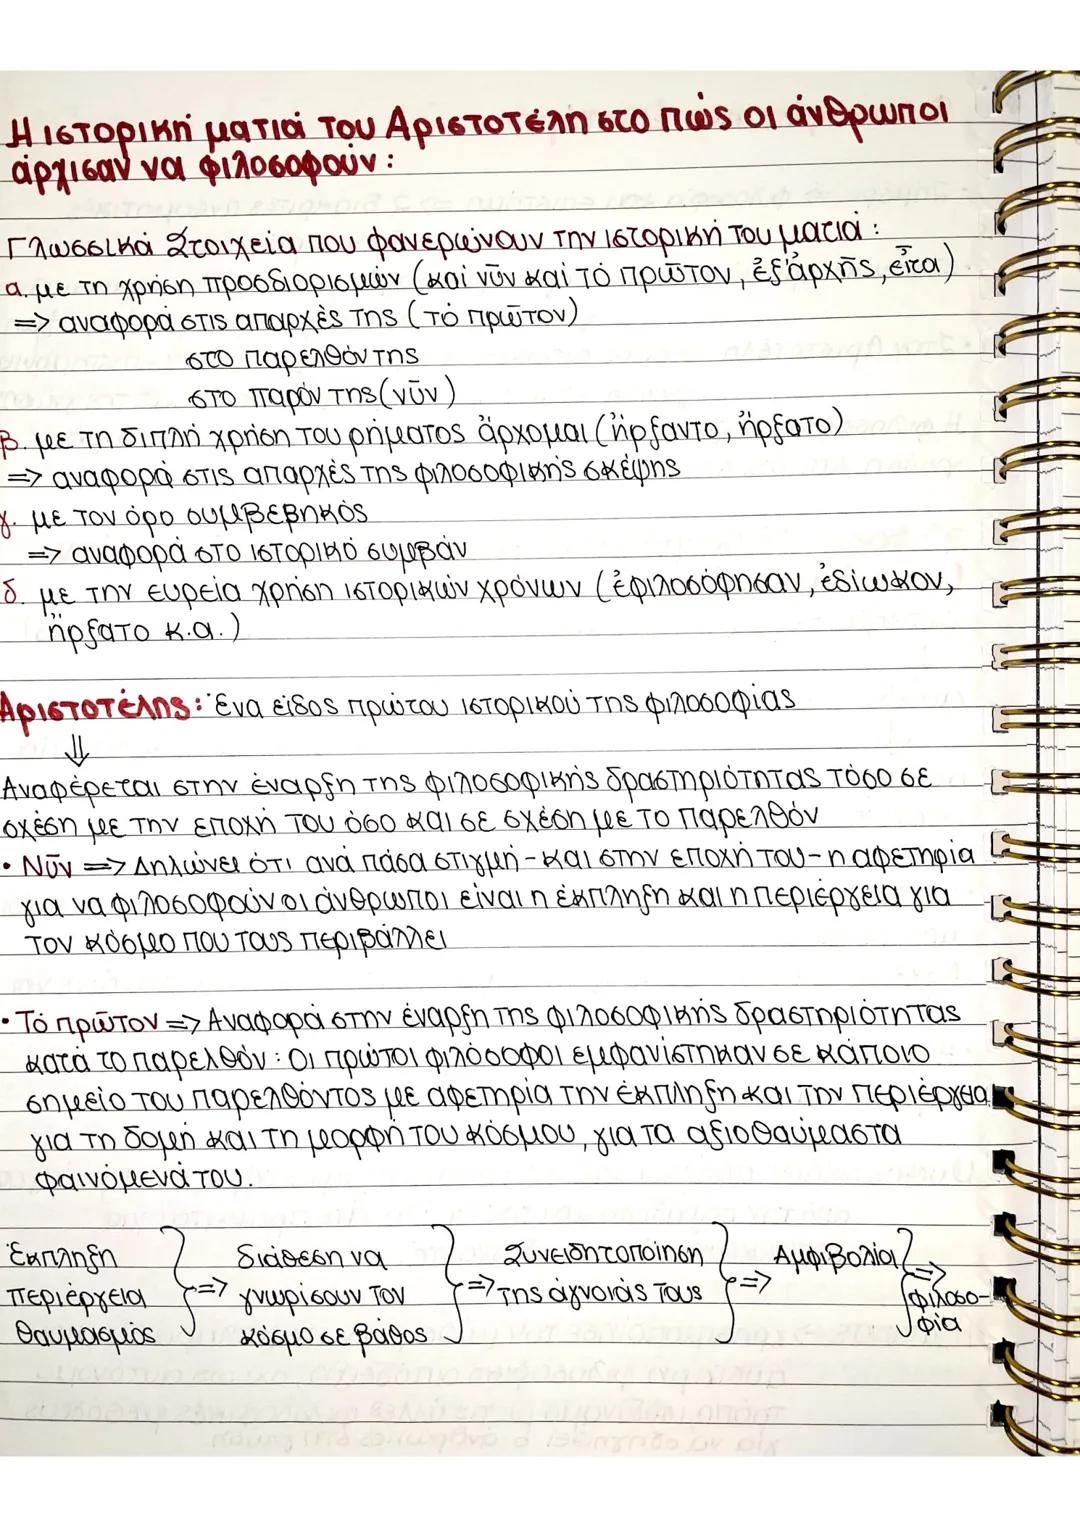 Η ιστορική ματιά του Αριστοτέλη στο πώς οι άνθρωποι
άρχισαν να φιλοσοφούν:
Γλωσσικά Στοιχεία που φανερώνουν την ιστορική του ματιά:
α. με τη χρήση προσδιορισμών (καί νῦν καί τό πρῶτον, ἐξ ἀρχῆς, εἶτα)
=> αναφορά στις απαρχές της (τό πρῶτον)
στο παρελθόν της
στο παρόν της (νῦν)
β. με τη διπλή χρήση του ρήματος ἄρχομαι (ἤρξαντο, ἤρξατο)
=> αναφορά στις απαρχές της φιλοσοφικής σκέψης
γ. με τον όρο συμβεβηκός
=> αναφορά στο ιστορικό συμβάν
δ. με την ευρεία χρήση ιστορικών χρόνων (ἐφιλοσόφησαν, ἐδίωκον,
ἤρξατο κ.α.)
Αριστοτέλης: Ένα είδος πρώτου ιστορικού της φιλοσοφίας
⇓
Αναφέρεται στην έναρξη της φιλοσοφικής δραστηριότητας τόσο σε
σχέση με την εποχή του όσο και σε σχέση με το παρελθόν
• Νῦν => Δηλώνει ότι ανά πάσα στιγμή - και στην εποχή του - η αφετηρία
για να φιλοσοφούν οι άνθρωποι είναι η έκπληξη και η περιέργεια για
τον κόσμο που τους περιβάλλει
• Τό πρῶτον => Αναφορά στην έναρξη της φιλοσοφικής δραστηριότητας
κατά το παρελθόν: Οι πρώτοι φιλόσοφοι εμφανίστηκαν σε κάποιο
σημείο του παρελθόντος με αφετηρία την έκπληξη και την περιέργεια
για τη δομή και τη μορφή του κόσμου, για τα αξιοθαύμαστα
φαινόμενά του.
Έκπληξη } διάθεση να } Συνειδητοποίηση } Αμφιβολία } =>
περιέργεια => γνωρίσουν τον => της άγνοιάς τους => φιλοσο-
θαυμασμός κόσμο σε βάθος φία